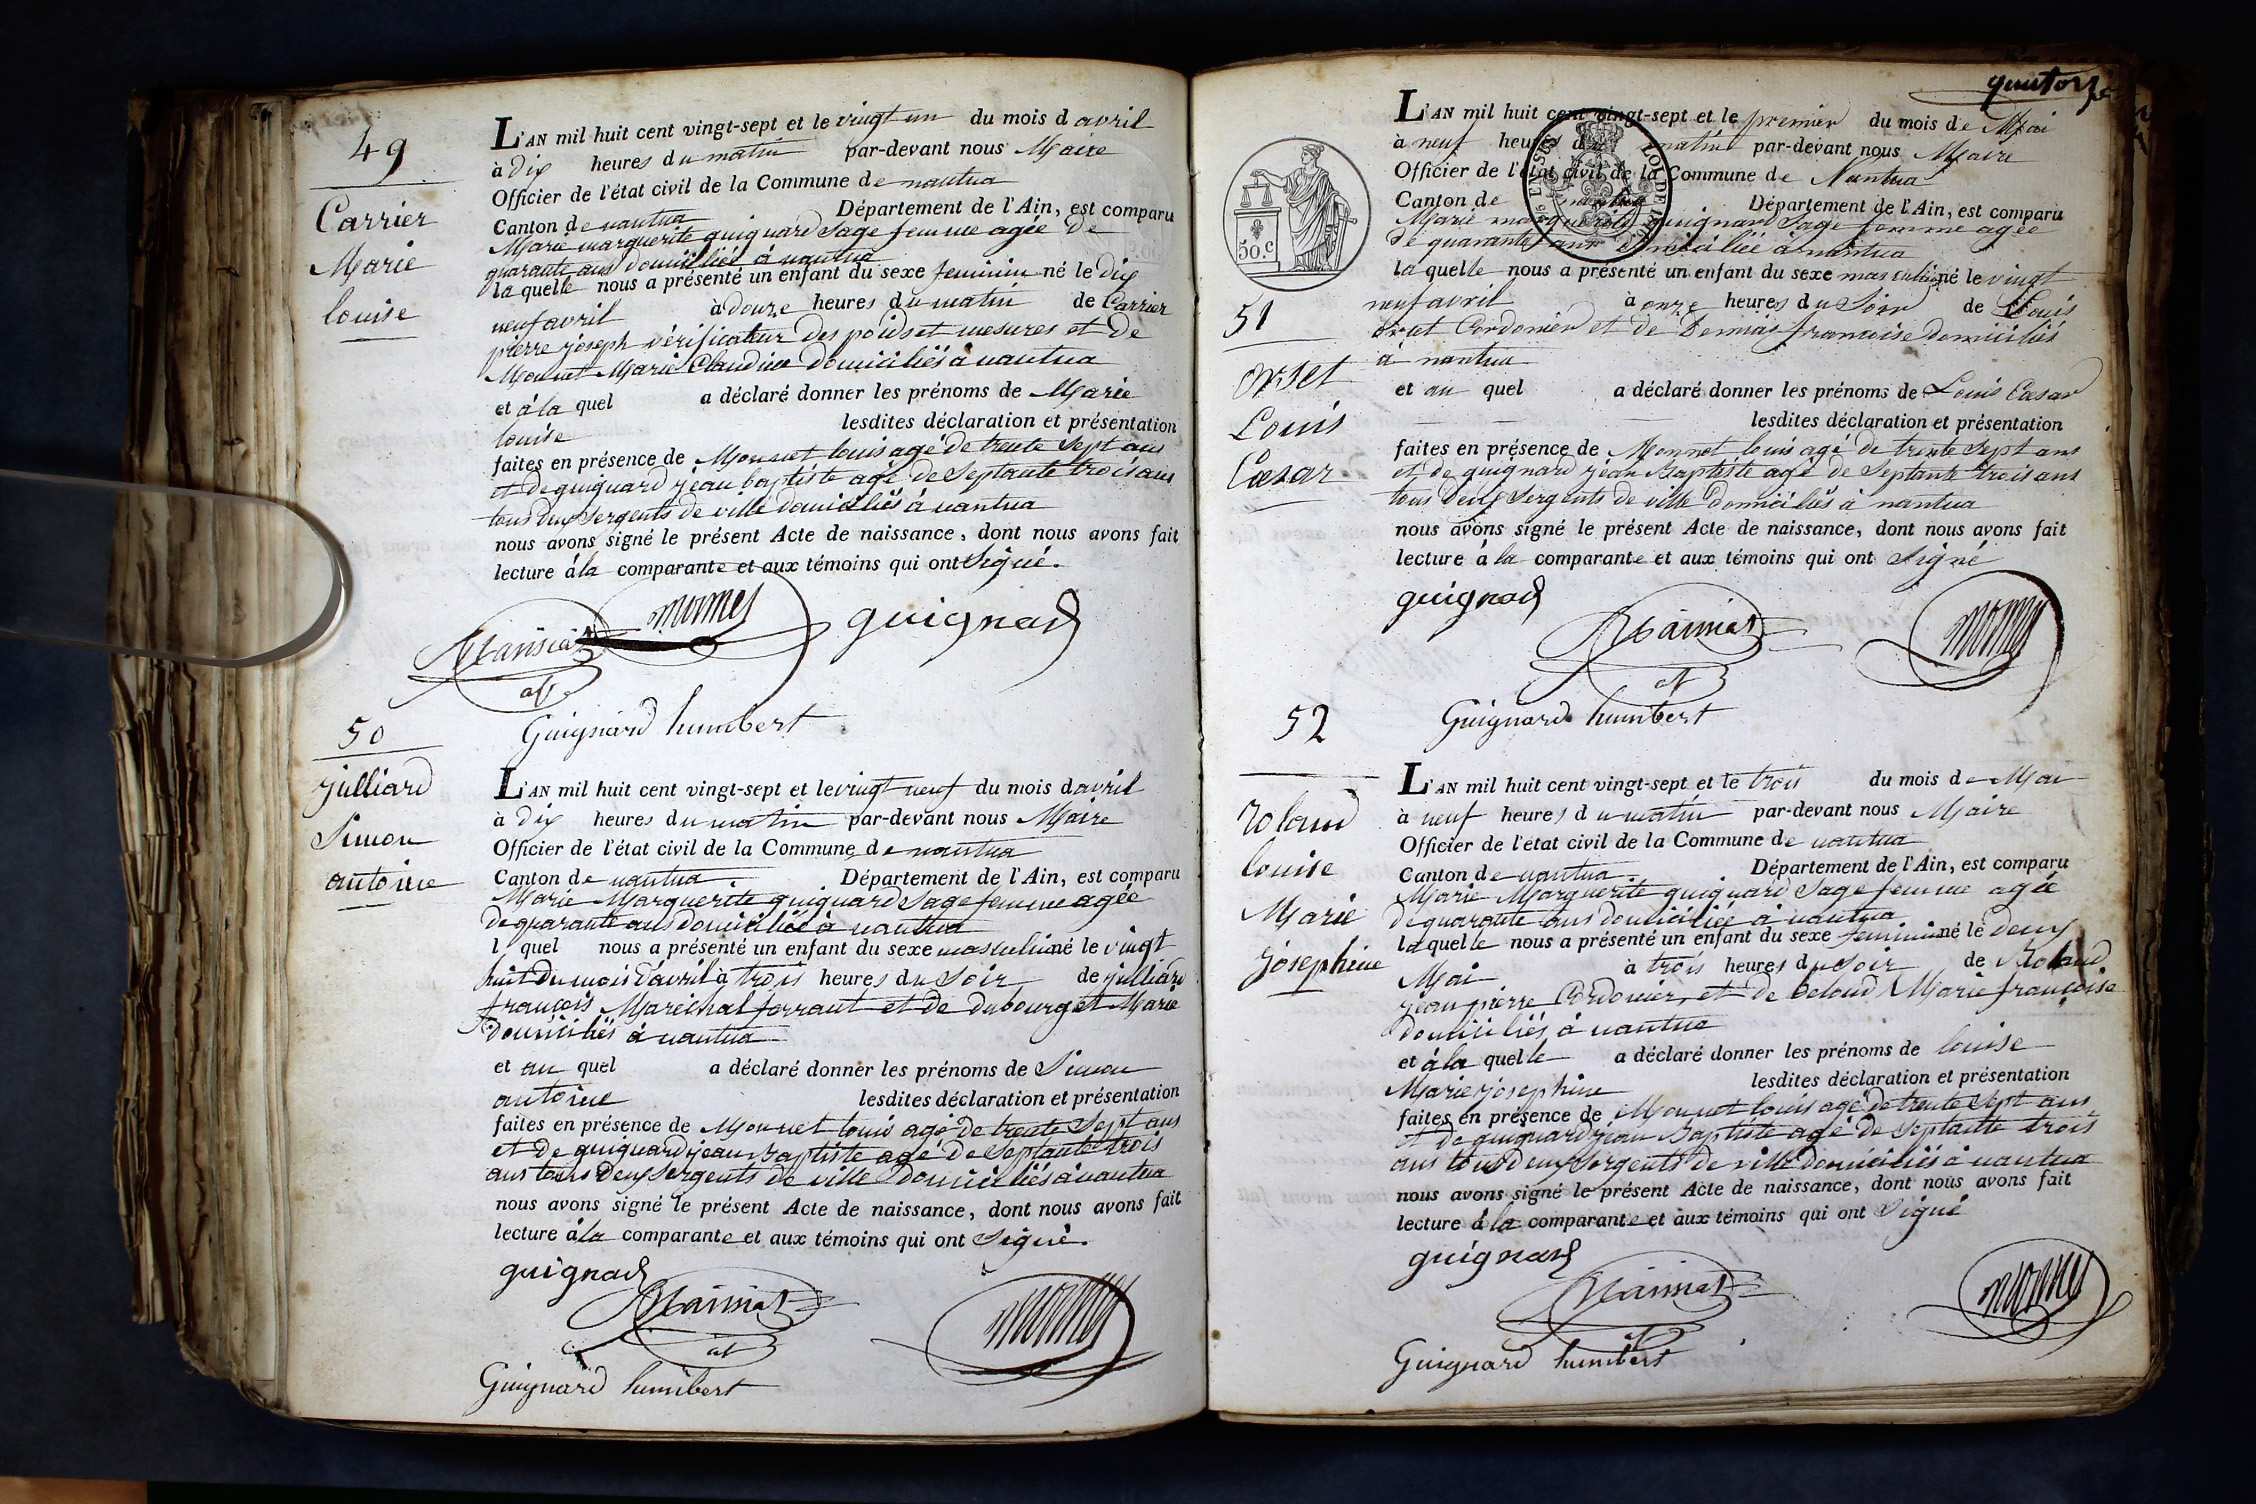 49
Carrier
Marie
louise
L'AN mil huit cent vingt-sept et le vingt un du mois d avril
à dix heures du matin par-devant nous Maire
Officier de l'état civil de la Commune de nantua
Canton de nantua Département de l'Ain, est comparu
Marie marguerite guignard Sage femme agée de
quarante ans domiciliée à nantua
la quelle nous a présenté un enfant du sexe feminin né le dix
neuf avril à douze heures du matin de Carrier
pierre joseph vérificateur des poids et mesures et de
Monnet Marie Claudine domiciliés à nantua
et à la quel a déclaré donner les prénoms de Marie
louise lesdites déclaration et présentation
faites en présence de Monnet louis agé de trente Sept ans
et de guignard jean baptiste agé de Septante trois ans
tous deux Sergents de ville domiciliés à nantua
nous avons signé le présent Acte de naissance, dont nous avons fait
lecture à la comparante et aux témoins qui ont Signé.
monnet guignard
Guignard humbert
50
julliard
Simon
antoine
L'AN mil huit cent vingt-sept et le vingt neuf du mois d avril
à dix heures du matin par-devant nous Maire
Officier de l'état civil de la Commune de nantua
Canton de nantua Département de l'Ain, est comparu
Marie Marguerite guignard Sage femme agée
de quarante ans domiciliée à nantua
l quel nous a présenté un enfant du sexe masculin né le vingt
huit du mois d'avril à trois heures du Soir de julliard
françois Maréchal ferrant et de dubourget Marie
domiciliés à nantua
et au quel a déclaré donner les prénoms de Simon
antoine lesdites déclaration et présentation
faites en présence de Monnet louis agé de trente Sept ans
et de guignard jean Baptiste agé de Septante trois
ans tous deux Sergents de ville domiciliés à nantua
nous avons signé le présent Acte de naissance, dont nous avons fait
lecture à la comparante et aux témoins qui ont Signé.
guignard
monnet
Guignard humbert
quatorze
50.C
51
orset
Louis
Cæsar
L'AN mil huit cent vingt-sept et le premier du mois de Mai
à neuf heures du matin par-devant nous Maire
Officier de l'état civil de la Commune de Nantua
Canton de nantua Département de l'Ain, est comparu
Marie marguerite guignard Sage femme agée
de quarante ans domiciliée à nantua
la quelle nous a présenté un enfant du sexe masculin né le vingt
neuf avril à onze heures du Soir de Louis
orset Cordonier et de françoise domiciliés
à nantua
et au quel a déclaré donner les prénoms de Louis Cæsar
lesdites déclaration et présentation
faites en présence de Monnet louis agé de trente Sept ans
et de guignard jean Baptiste agé de Septante trois ans
tous deux Sergents de ville domiciliés à nantua
nous avons signé le présent Acte de naissance, dont nous avons fait
lecture à la comparante et aux témoins qui ont Signé
guignard
monnet
Guignard humbert
52
roland
louise
Marie
josephine
L'AN mil huit cent vingt-sept et le trois du mois de Mai
à neuf heures du matin par-devant nous Maire
Officier de l'état civil de la Commune de nantua
Canton de nantua Département de l'Ain, est comparu
Marie Marguerite guignard Sage femme agée
de quarante ans domiciliée à nantua
la quelle nous a présenté un enfant du sexe feminin né le deux
Mai à trois heures du soir de Roland
jean pierre Cordonier, et de Marie françoise
domiciliés à nantua
et à la quelle a déclaré donner les prénoms de louise
Marie josephine lesdites déclaration et présentation
faites en présence de Monnet louis agé de trente Sept ans
et de guignard jean Baptiste agé de Septante trois
ans tous deux Sergents de ville domiciliés à nantua
nous avons signé le présent Acte de naissance, dont nous avons fait
lecture à la comparante et aux témoins qui ont Signé
guignard
monnet
Guignard humbert